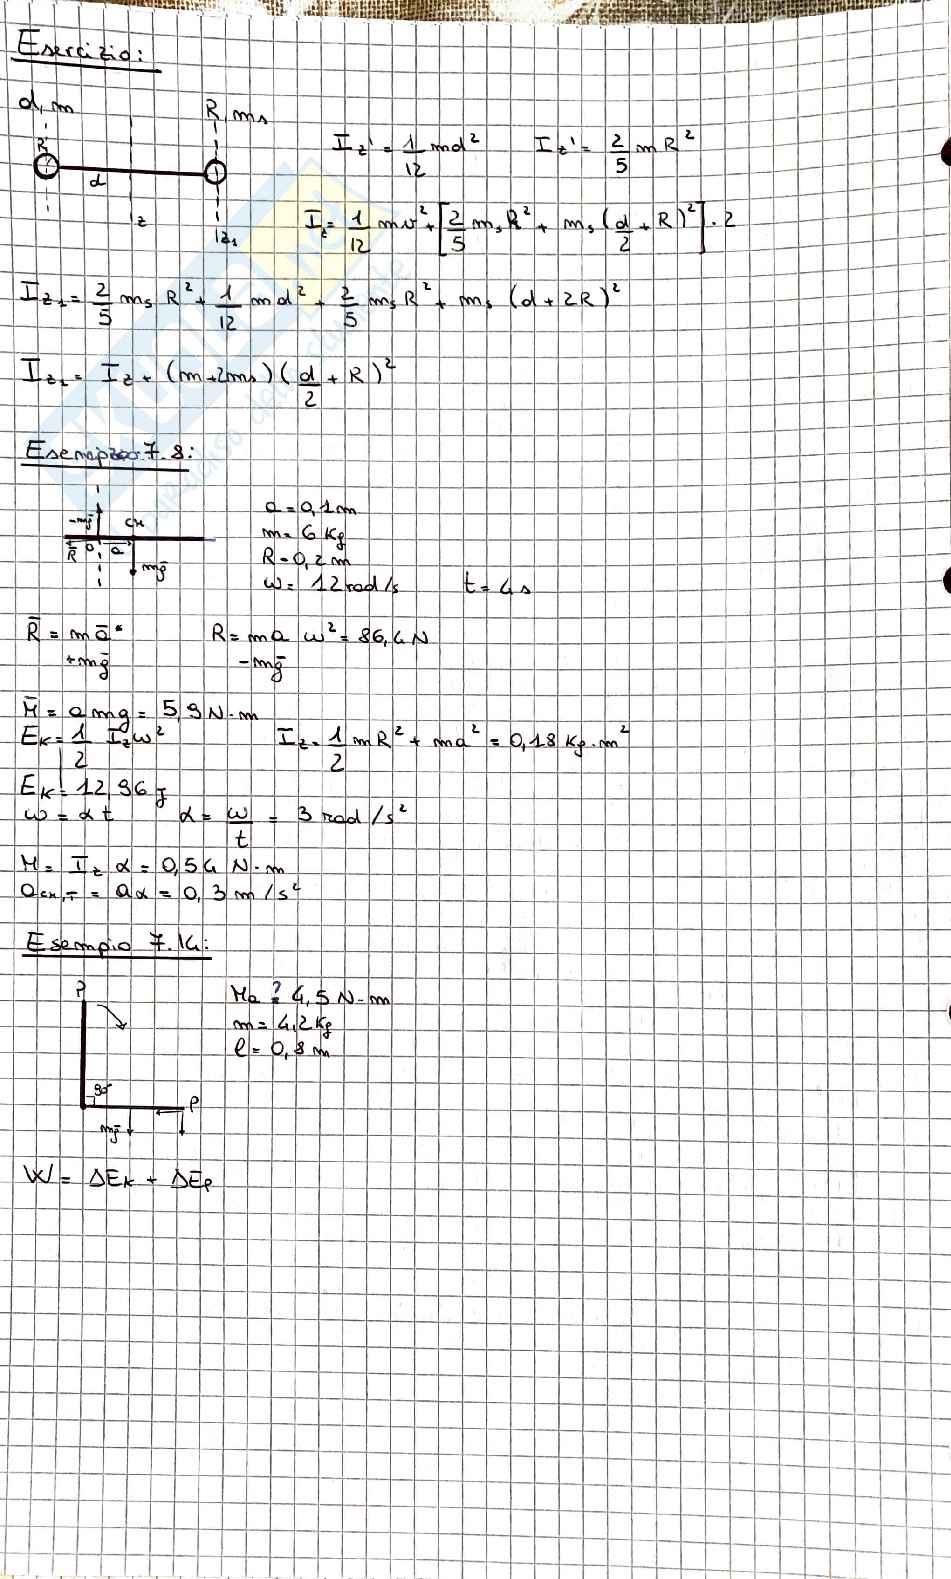 Esercizio:
d, m
R, ms
R
d
z
z₁
I_z' = 1/12 md²    I_z' = 2/5 m R²
I_z = 1/12 mv² + [2/5 m_s R² + m_s (d/2 + R)²] · 2
I_z₁ = 2/5 m_s R² + 1/12 m d² + 2/5 m_s R² + m_s (d + 2R)²
I_z₁ = I_z + (m + 2m_s) (d/2 + R)²
Esempio 7.8:
-mḡ
CM
R̄ O a
mḡ
a = 0,1 m
m = 6 Kg
R = 0,2 m
ω = 12 rad/s    t = 4s
R̄ = mā*    R = ma ω² = 86,4 N
+mḡ    -mḡ
M̄ = a mg = 5,9 N·m
E_K = 1/2 I_z ω²    I_z = 1/2 mR² + ma² = 0,18 Kg·m²
E_K = 12,96 J
ω = α t    α = ω/t = 3 rad/s²
M = I_z α = 0,54 N·m
a_CM,T = aα = 0,3 m/s²
Esempio 7.14:
P
90°
P
mḡ
Ma ?= 4,5 N·m
m = 4,2 Kg
l = 0,8 m
W = ΔE_K + ΔE_P